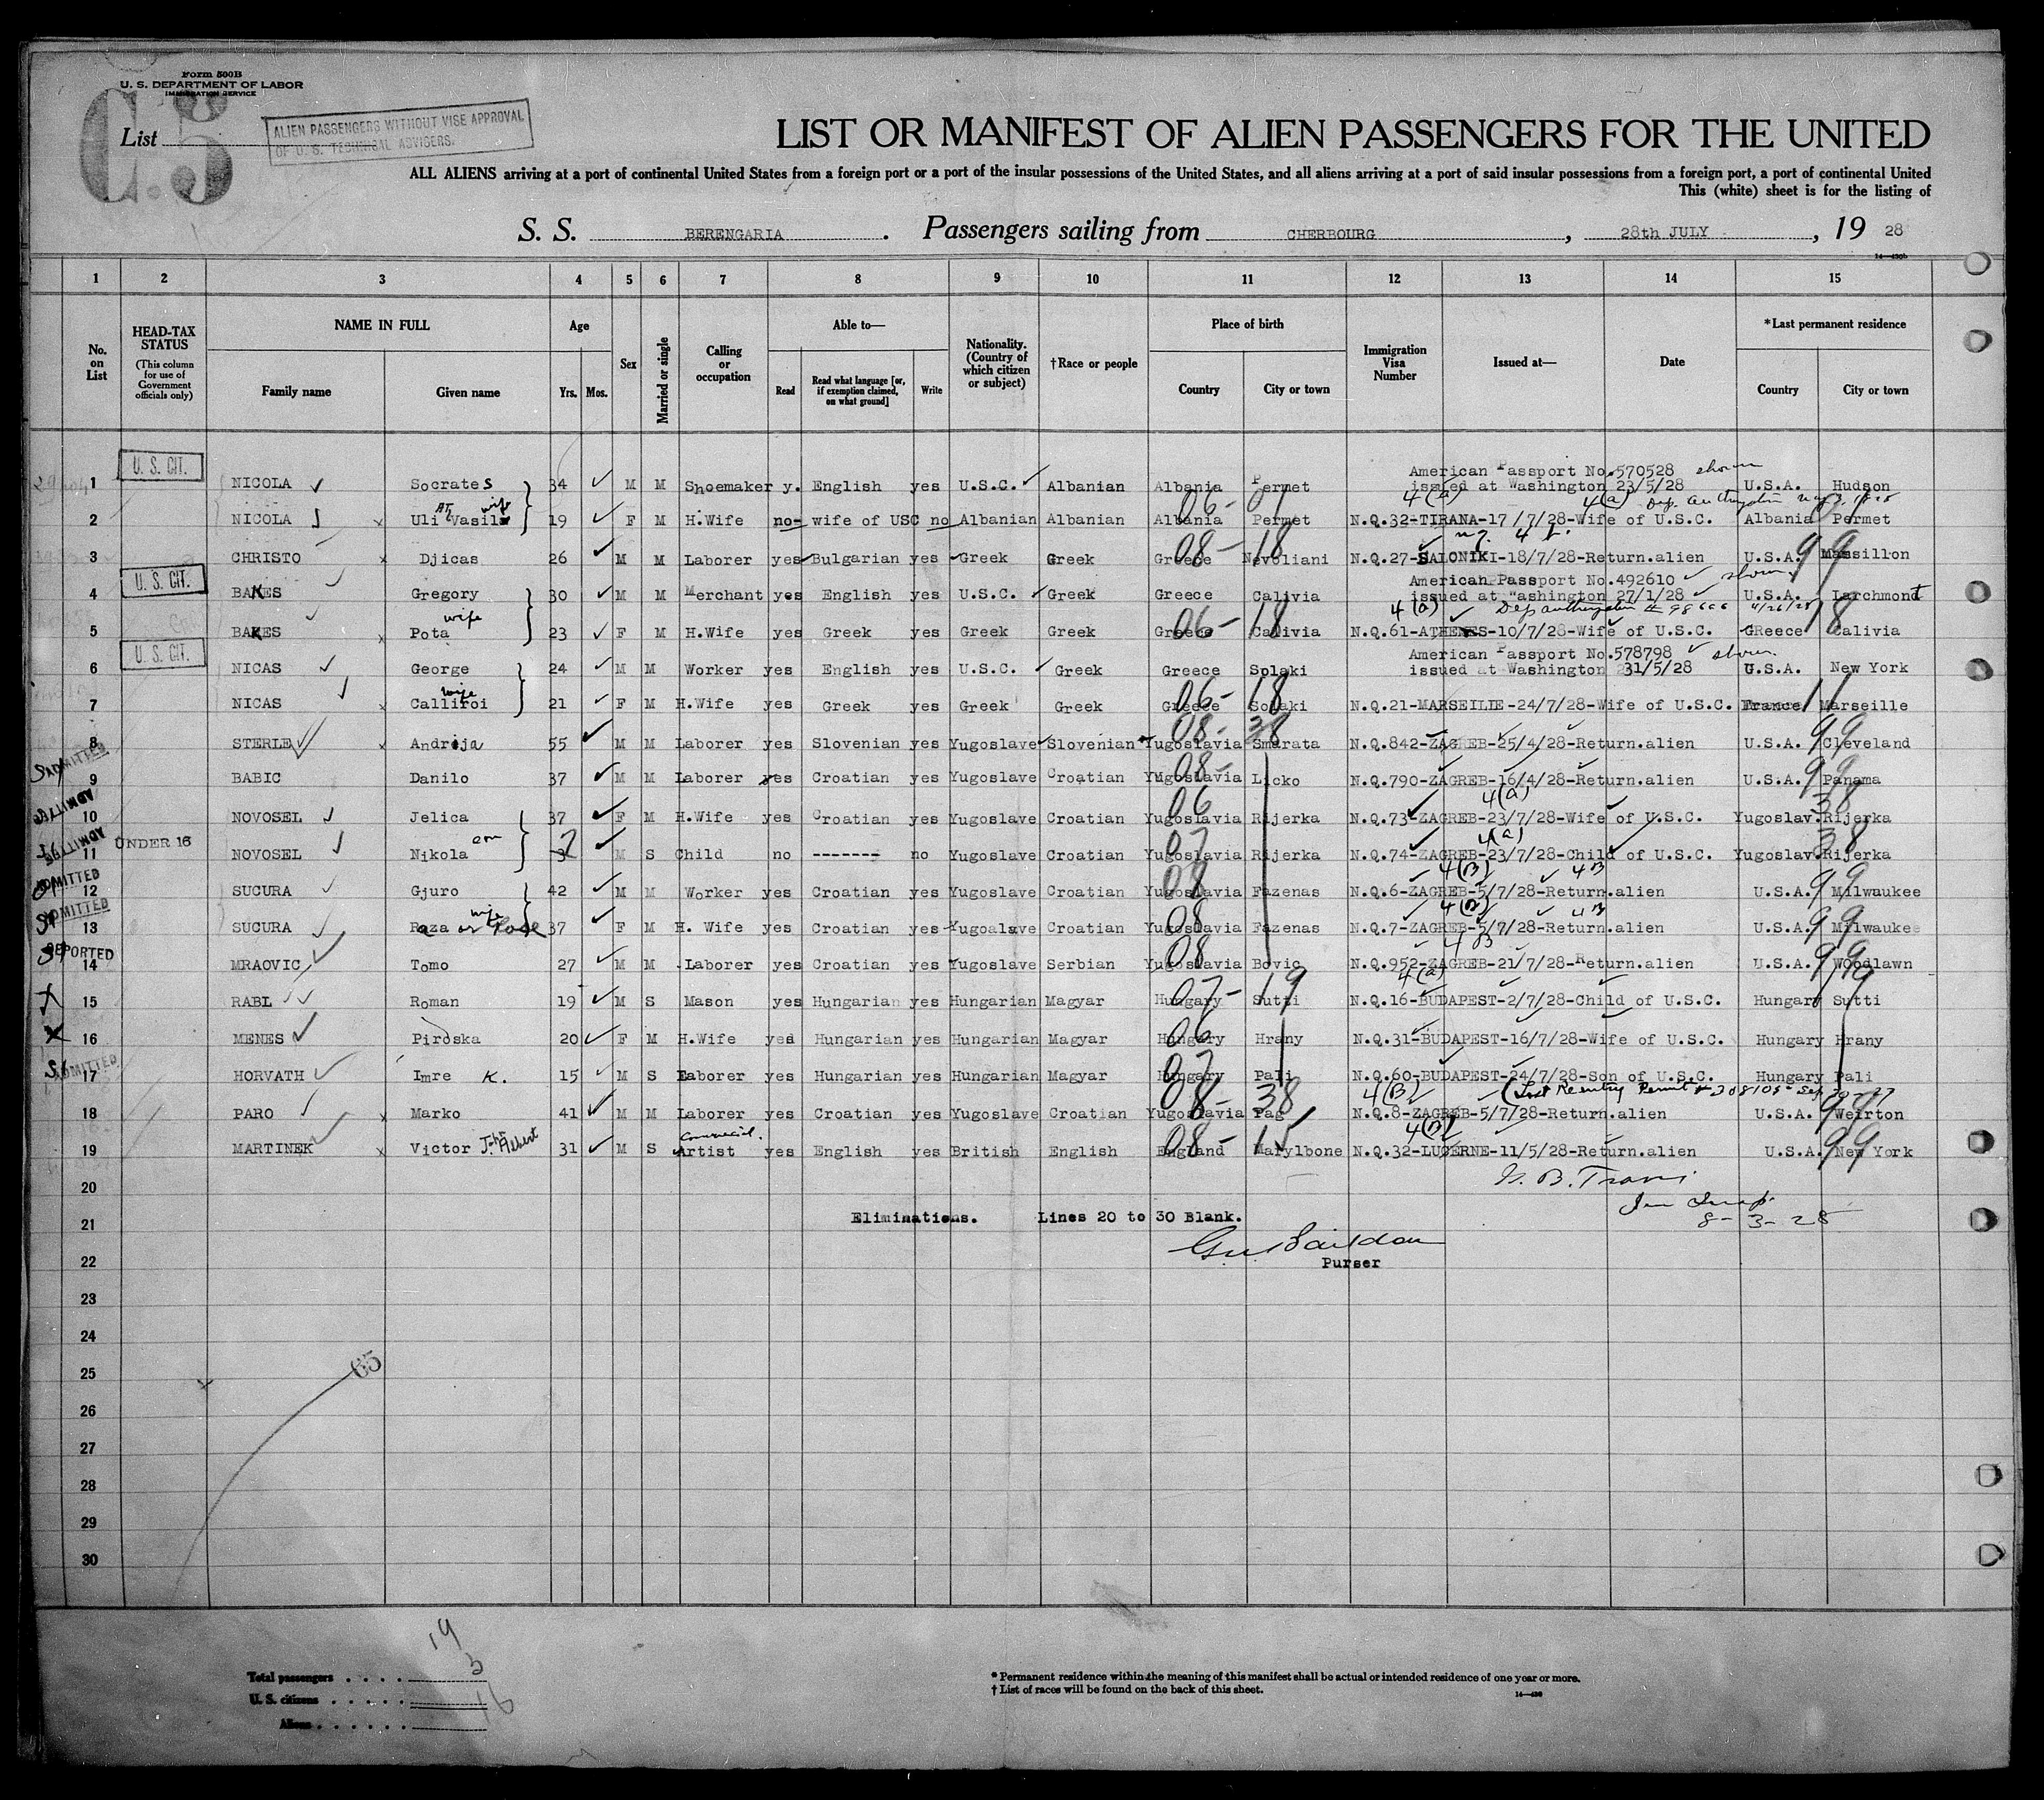 Form 500B
U. S. DEPARTMENT OF LABOR
IMMIGRATION SERVICE
C.5
List
ALIEN PASSENGERS WITHOUT VISE APPROVAL
OF U. S. TECHNICAL ADVISERS.
LIST OR MANIFEST OF ALIEN PASSENGERS FOR THE UNITED
ALL ALIENS arriving at a port of continental United States from a foreign port or a port of the insular possessions of the United States, and all aliens arriving at a port of said insular possessions from a foreign port, a port of continental United
This (white) sheet is for the listing of
S. S. BERENGARIA. Passengers sailing from CHERBOURG, 28th JULY, 19 28
1 2 3 4 5 6 7 8 9 10 11 12 13 14 15
No. on List
HEAD-TAX STATUS
(This column for use of Government officials only)
NAME IN FULL
Family name Given name
Age
Yrs. Mos.
Sex
Married or single
Calling or occupation
Able to—
Read Read what language [or, if exemption claimed, on what ground] Write
Nationality. (Country of which citizen or subject)
†Race or people
Place of birth
Country City or town
Immigration Visa Number
Issued at—
Date
*Last permanent residence
Country City or town
U. S. CIT.
American Passport No.570528 shown
1 NICOLA Socrates 34 M M Shoemaker y. English yes U.S.C. Albanian Albania Permet issued at Washington 23/5/28 U.S.A. Hudson
wife 06- 01 4(a) 4(a)
2 NICOLA Uli Vasil 19 F M H.Wife no- wife of USC no Albanian Albanian Albania Permet N.Q.32-TIRANA-17/7/28-Wife of U.S.C. Albania Permet
08- 18 99
3 CHRISTO Djicas 26 M M Laborer yes Bulgarian yes Greek Greek Greece Nevoliani N.Q.27-SALONIKI-18/7/28-Return.alien U.S.A. Massillon
U. S. CIT.
American Passport No.492610 shown
4 BAKES Gregory 30 M M Merchant yes English yes U.S.C. Greek Greece Calivia issued at Washington 27/1/28 U.S.A. Larchmont
wife 06- 18 4(a) 4/26/28 18
5 BAKES Pota 23 F M H.Wife yes Greek yes Greek Greek Greece Calivia N.Q.61-ATHENES-10/7/28-Wife of U.S.C. GReece Calivia
U. S. CIT.
American Passport No.578798 shown.
6 NICAS George 24 M M Worker yes English yes U.S.C. Greek Greece Solaki issued at Washington 31/5/28 U.S.A. New York
wife 06- 18 11
7 NICAS Calliroi 21 F M H.Wife yes Greek yes Greek Greek Greece Solaki N.Q.21-MARSEILLE-24/7/28-Wife of U.S.C. France Marseille
08- 38 99
8 STERLE Andreja 55 M M Laborer yes Slovenian yes Yugoslave Slovenian Yugoslavia Smarata N.Q.842-ZAGREB-25/4/28-Return.alien U.S.A. Cleveland
ADMITTED 08- 99
9 BABIC Danilo 37 M M Laborer yes Croatian yes Yugoslave Croatian Yugoslavia Licko N.Q.790-ZAGREB-16/4/28-Return.alien U.S.A. Panama
ADMITTED 06 4(a) 38
10 NOVOSEL Jelica 37 F M H.Wife yes Croatian yes Yugoslave Croatian Yugoslavia Rijerka N.Q.73-ZAGREB-23/7/28-Wife of U.S.C. Yugoslav. Rijerka
ADMITTED UNDER 16 07 4(a) 38
11 NOVOSEL Nikola M S Child no ------- no Yugoslave Croatian Yugoslavia Rijerka N.Q.74-ZAGREB-23/7/28-Child of U.S.C. Yugoslav. Rijerka
ADMITTED 08 4(B) 4B 99
12 SUCURA Gjuro 42 M M Worker yes Croatian yes Yugoslave Croatian Yugoslavia Fazenas N.Q.6-ZAGREB-5/7/28-Return.alien U.S.A. Milwaukee
ADMITTED wife 08 4(B) 4B 99
13 SUCURA Raza or Rose 37 F M H. Wife yes Croatian yes Yugoalsve Croatian Yugoslavia Fazenas N.Q.7-ZAGREB-5/7/28-Return.alien U.S.A. Milwaukee
DEPORTED 08 4B 99
14 MRAOVIC Tomo 27 M M Laborer yes Croatian yes Yugoslave Serbian Yugoslavia Bovic N.Q.952-ZAGREB-21/7/28-Return.alien U.S.A. Woodlawn
07- 19 4(a) 19
15 RABL Roman 19 M S Mason yes Hungarian yes Hungarian Magyar Hungary Sutti N.Q.16-BUDAPEST-2/7/28-Child of U.S.C. Hungary Sutti
06
16 MENES Piroska 20 F M H.Wife yes Hungarian yes Hungarian Magyar Hungary Hrany N.Q.31-BUDAPEST-16/7/28-Wife of U.S.C. Hungary Hrany
ADMITTED 07
17 HORVATH Imre K. 15 M S Laborer yes Hungarian yes Hungarian Magyar Hungary Pali N.Q.60-BUDAPEST-24/7/28-Son of U.S.C. Hungary Pali
08- 38 4(B) (Lost Reentry Permit # 308105 99
18 PARO Marko 41 M M Laborer yes Croatian yes Yugoslave Croatian Yugoslavia Pag N.Q.8-ZAGREB-5/7/28-Return.alien U.S.A. Weirton
John Albert commercial. 08- 15 4(B) 99
19 MARTINEK Victor 31 M S Artist yes English yes British English England Marylbone N.Q.32-LUCERNE-11/5/28-Return.alien U.S.A. New York
20
8-3-28
21 Eliminations. Lines 20 to 30 Blank.
22 Purser
23
24
25 65
26
27
28
29
30
Total passengers . . . . 19
U. S. citizens . . . . . 3
Aliens . . . . . . 16
* Permanent residence within the meaning of this manifest shall be actual or intended residence of one year or more.
† List of races will be found on the back of this sheet.